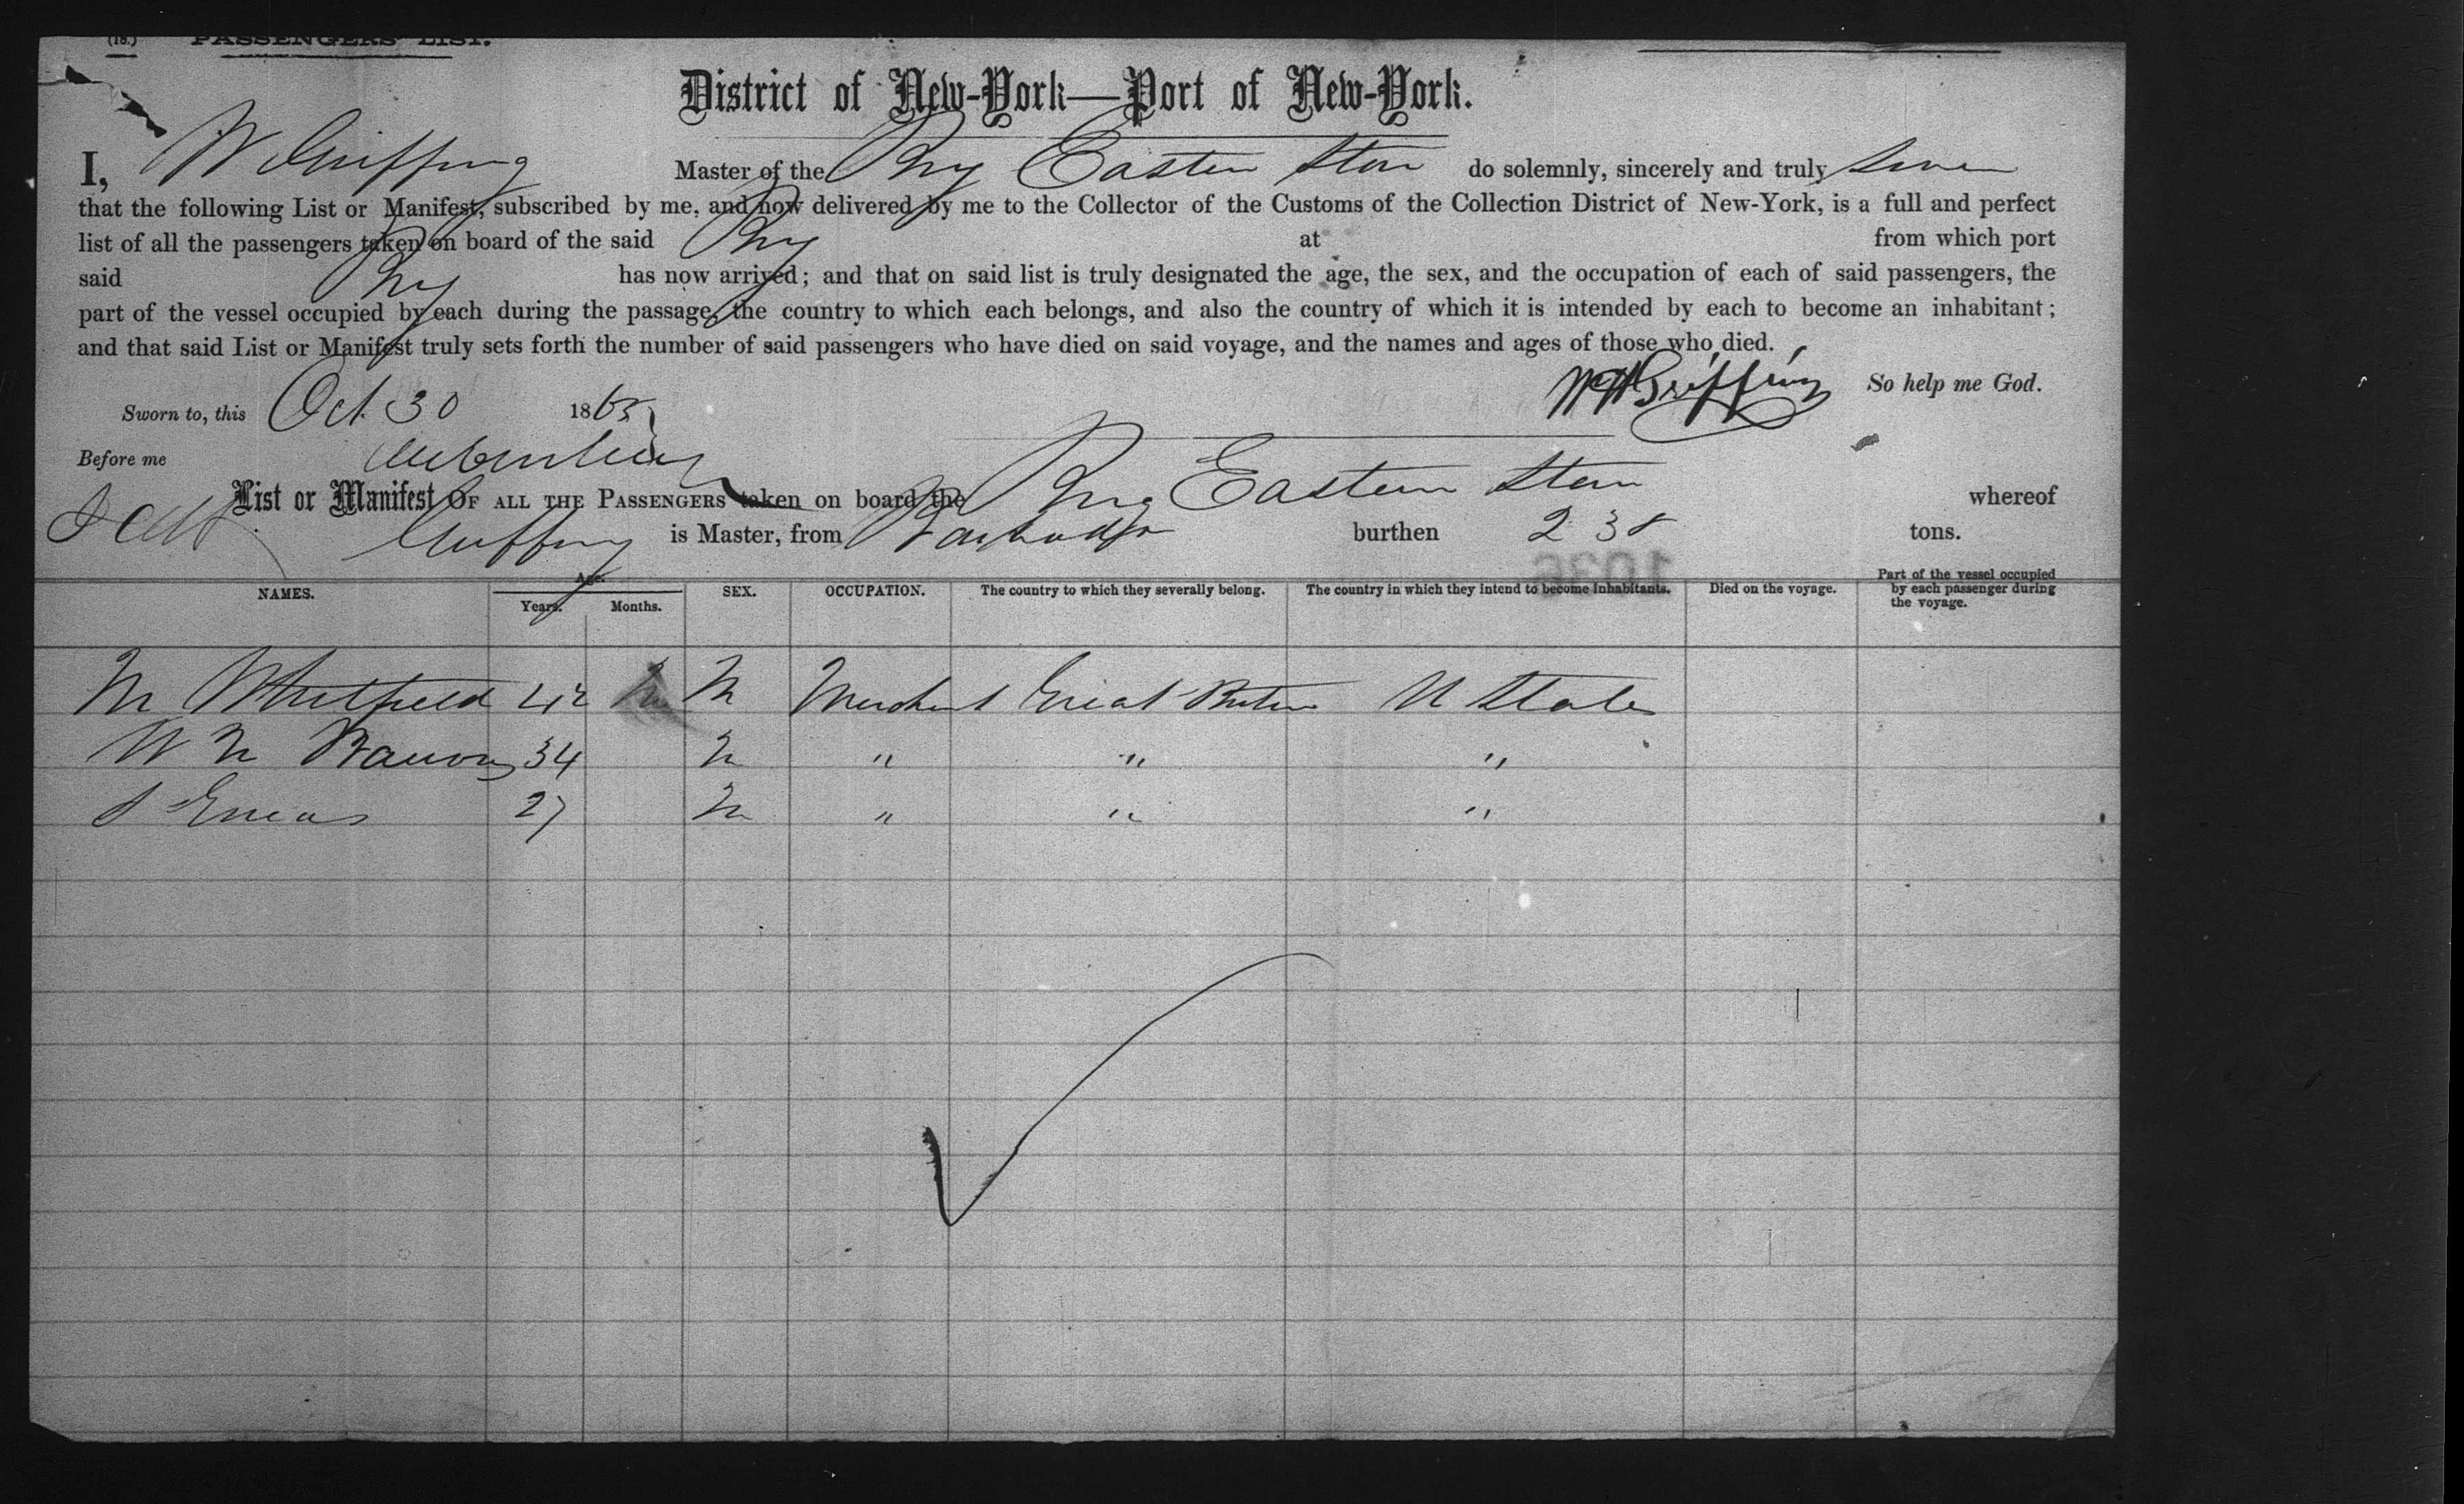 (18.) PASSENGERS' LIST.
District of New-York—Port of New-York.
I, W Griffing Master of the Brig Eastern Star do solemnly, sincerely and truly swear
that the following List or Manifest, subscribed by me, and now delivered by me to the Collector of the Customs of the Collection District of New-York, is a full and perfect
list of all the passengers taken on board of the said Brig at from which port
said Brig has now arrived; and that on said list is truly designated the age, the sex, and the occupation of each of said passengers, the
part of the vessel occupied by each during the passage, the country to which each belongs, and also the country of which it is intended by each to become an inhabitant;
and that said List or Manifest truly sets forth the number of said passengers who have died on said voyage, and the names and ages of those who died.
W H Griffing So help me God.
Sworn to, this Oct 30 1865
Before me
List or Manifest OF ALL THE PASSENGERS taken on board the Brig Eastern Star whereof
Griffing is Master, from Barbados burthen 238 tons.
1036
NAMES. Age. Years. Months. SEX. OCCUPATION. The country to which they severally belong. The country in which they intend to become inhabitants. Died on the voyage. Part of the vessel occupied by each passenger during the voyage.
M Whitfield 42 M Merchant Great Britain U States
W M 34 M " " "
S Eneas 27 M " " "